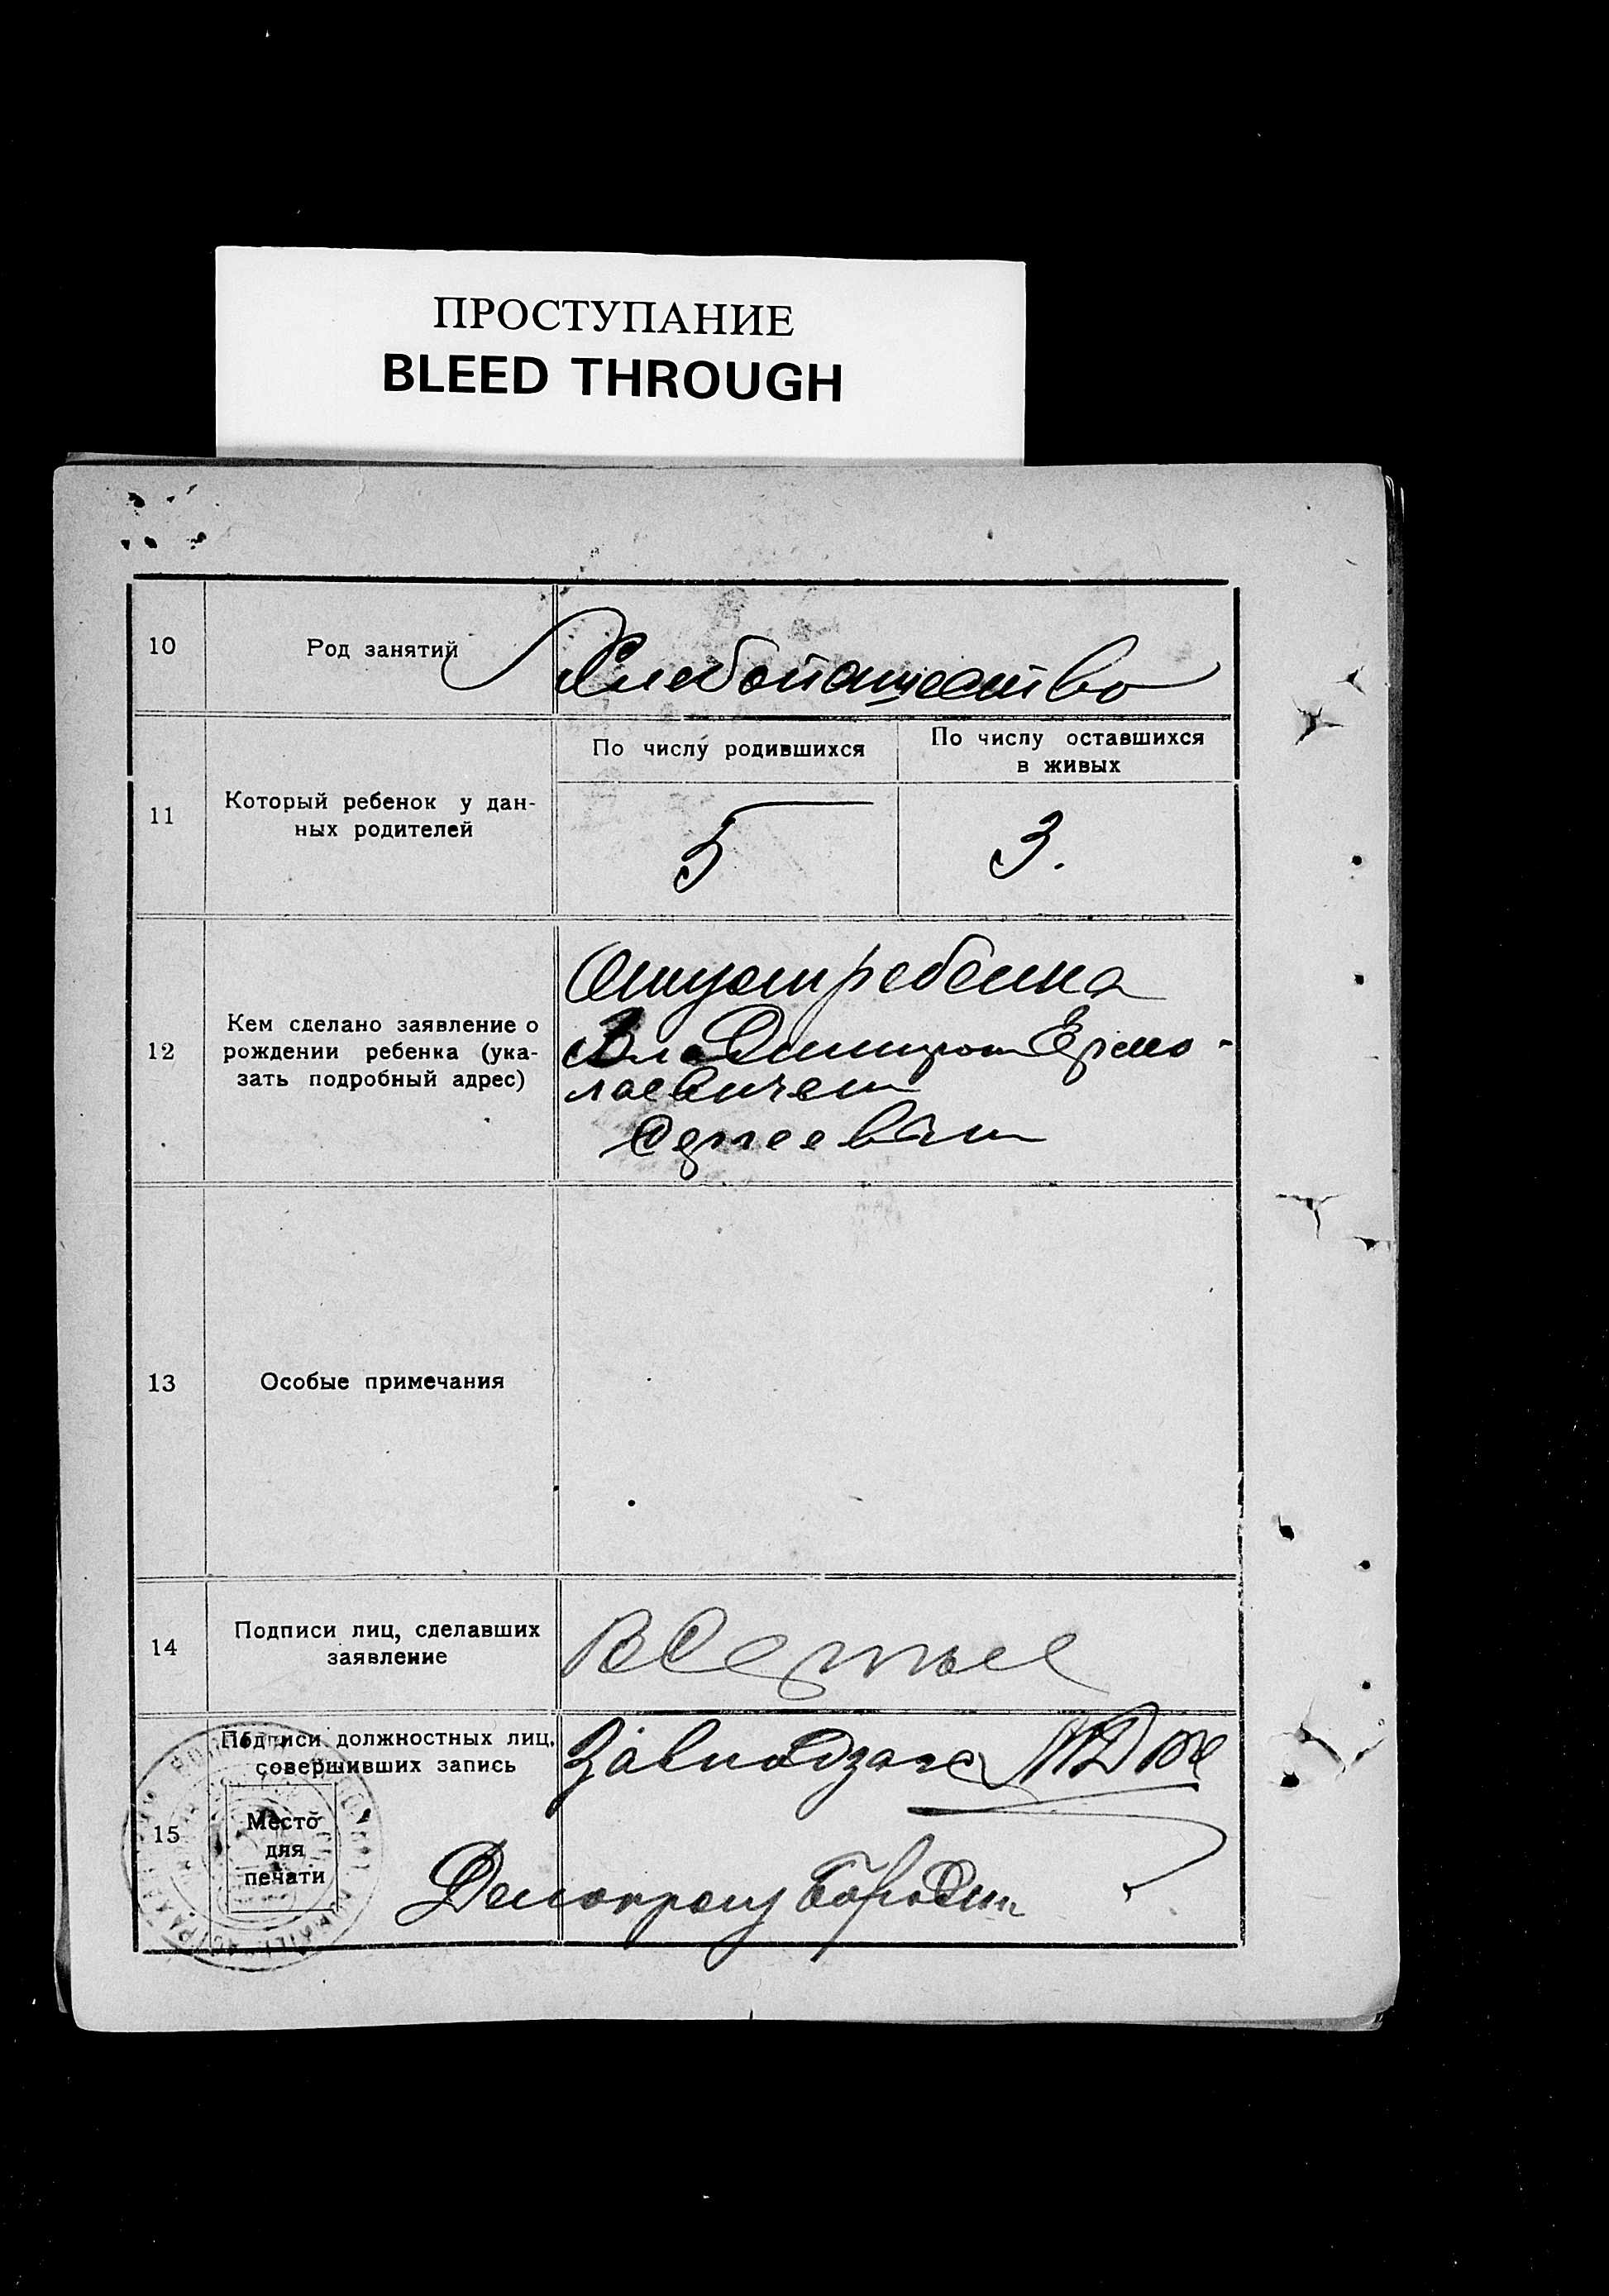 ПРОСТУПАНИЕ
BLEED THROUGH
10
Род занятий
Хлебопашество
11
Который ребенок у дан-
ных родителей
По числу родившихся
По числу оставшихся
в живых
5
3.
12
Кем сделано заявление о
рождении ребенка (ука-
зать подробный адрес)
Отцом ребенка
Владимиром Ермо-
лаевичем
Сергеевым
13
Особые примечания
14
Подписи лиц, сделавших
заявление
15
Подписи должностных лиц,
совершивших запись
Место
для
печати
Делопроиз Бородин